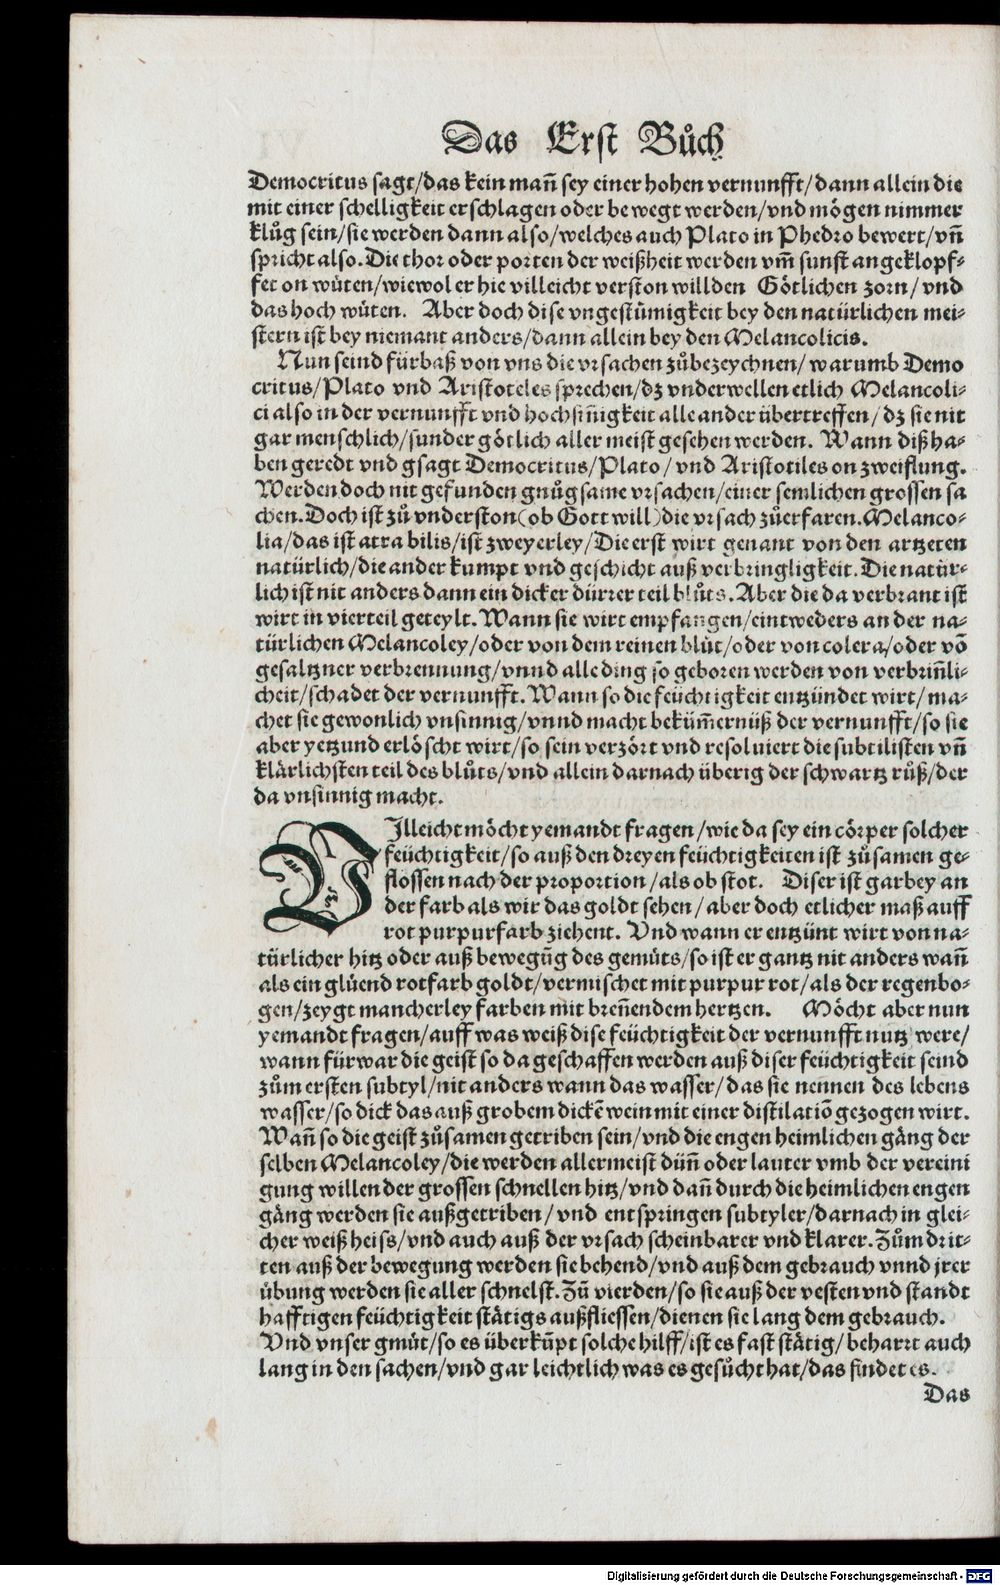 Das Erst Bůch
Democritus sagt/das kein mañ sey einer hohen vernunfft/dann allein die
mit einer schelligkeit erschlagen oder bewegt werden/vnd mögen nimmer
klůg sein/sie werden dann also/welches auch Plato in Phedro bewert/vñ
spricht also. Die thor oder porten der weißheit werden vm̃ sunst angeklopf-
fet on wüten/wiewol er hie villeicht verston willden Götlichen zorn/vnd
das hoch wüten. Aber doch dise vngestümigkeit bey den natürlichen mei-
stern ist bey niemant anders/dann allein bey den Melancolicis.
Nun seind fürbaß von vns die vrsachen zůbezeychnen/warumb Demo
critus/Plato vnd Aristoteles sprechen/dz vnderwellen etlich Melancoli-
ci also in der vernunfft vnd hochsiñigkeit alle ander übertreffen/dz sie nit
gar menschlich/sunder götlich aller meist gesehen werden. Wann diß ha-
ben geredt vnd gsagt Democritus/Plato/vnd Aristotiles on zweiflung.
Werden doch nit gefunden gnůgsame vrsachen/einer semlichen grossen sa
chen. Doch ist zů vnderston(ob Gott will)die vrsach zůerfaren. Melanco-
lia/das ist atra bilis/ist zweyerley/Die erst wirt genant von den artzeten
natürlich/die ander kumpt vnd geschicht auß verbringligkeit. Die natür-
lich ist nit anders dann ein dicker dürrer teil blůts. Aber die da verbrant ist
wirt in vierteil geteylt. Wann sie wirt empfangen/eintweders an der na-
türlichen Melancoley/oder von dem reinen blůt/oder von colera/oder vō
gesaltzner verbrennung/vnnd alle ding so geboren werden von verbriñli-
cheit/schadet der vernunfft. Wann so die feüchtigkeit entzündet wirt/ma-
chet sie gewonlich vnsinnig/vnnd macht beküm̃ernüß der vernunfft/so sie
aber yetzund erlöscht wirt/so sein verzört vnd resoluiert die subtilisten vñ
klärlichsten teil des blůts/vnd allein darnach überig der schwartz růß/der
da vnsinnig macht.
VIlleicht möcht yemandt fragen/wie da sey ein cörper solcher
feüchtigkeit/so auß den dreyen feüchtigkeiten ist zůsamen ge-
flossen nach der proportion/als ob stot. Diser ist garbey an
der farb als wir das goldt sehen/aber doch etlicher maß auff
rot purpurfarb ziehent. Vnd wann er entzünt wirt von na-
türlicher hitz oder auß bewegūg des gemüts/so ist er gantz nit anders wañ
als ein glüend rotfarb goldt/vermischet mit purpur rot/als der regenbo-
gen/zeygt mancherley farben mit breñendem hertzen. Möcht aber nun
yemandt fragen/auff was weiß dise feüchtigkeit der vernunfft nutz were/
wann fürwar die geist so da geschaffen werden auß diser feüchtigkeit seind
zům ersten subtyl/nit anders wann das wasser/das sie nennen des lebens
wasser/so dick das auß grobem dickē wein mit einer distilatiō gezogen wirt.
Wañ so die geist zůsamen getriben sein/vnd die engen heimlichen gäng der
selben Melancoley/die werden allermeist düñ oder lauter vmb der vereini
gung willen der grossen schnellen hitz/vnd dañ durch die heimlichen engen
gäng werden sie außgetriben/vnd entspringen subtyler/darnach in glei-
cher weiß heiss/vnd auch auß der vrsach scheinbarer vnd klarer. Zům drit-
ten auß der bewegung werden sie behend/vnd auß dem gebrauch vnnd jrer
übung werden sie aller schnelst. Zū vierden/so sie auß der vesten vnd standt
hafftigen feüchtigkeit stätigs außfliessen/dienen sie lang dem gebrauch.
Vnd vnser gmüt/so es überkūpt solche hilff/ist es fast stätig/beharrt auch
lang in den sachen/vnd gar leichtlich was es gesůcht hat/das findet es.
Das
Digitalisierung gefördert durch die Deutsche Forschungsgemeinschaft - DFG